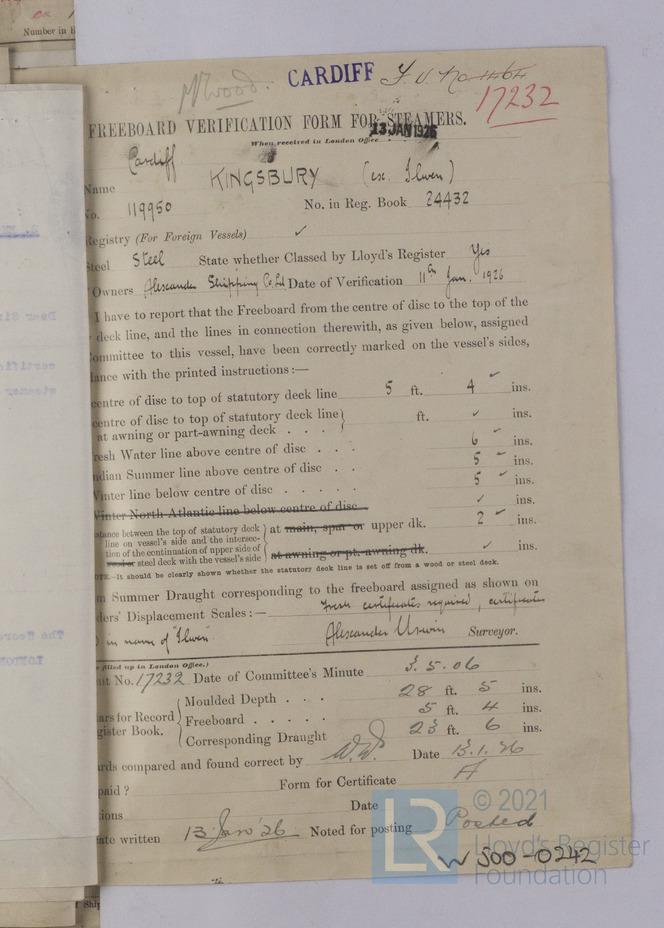 Number in
Wood. CARDIFF F.V. No 4464
17232
FREEBOARD VERIFICATION FORM FOR STEAMERS.
13 JAN 1926
When received in London Office
Cardiff
Name KINGSBURY (ex. Ilwen)
No. 119950 No. in Reg. Book 24432
Registry (For Foreign Vessels) ✓
Steel Steel State whether Classed by Lloyd's Register Yes
Owners Alexander Shipping Co. Ltd Date of Verification 11th Jan. 1926
I have to report that the Freeboard from the centre of disc to the top of the
deck line, and the lines in connection therewith, as given below, assigned
ommittee to this vessel, have been correctly marked on the vessel's sides,
dance with the printed instructions:—
centre of disc to top of statutory deck line 5 ft. 4 ✓ ins.
centre of disc to top of statutory deck line } ft. ✓ ins.
at awning or part-awning deck . . . }
resh Water line above centre of disc . . . 6 ✓ ins.
ndian Summer line above centre of disc . . 5 ✓ ins.
Winter line below centre of disc . . . . . 5 ✓ ins.
Winter North Atlantic line below centre of disc ✓ ins.
stance between the top of statutory deck } at main, spar or upper dk. 2 ✓ ins.
line on vessel's side and the intersec-
tion of the continuation of upper side of
wood or steel deck with the vessel's side } at awning or pt. awning dk. ✓ ins.
OTE.—It should be clearly shown whether the statutory deck line is set off from a wood or steel deck.
m Summer Draught corresponding to the freeboard assigned as shown on
ders' Displacement Scales:— Fresh certificates required, certificates
in name of "Ilwen" Alexander Urwin Surveyor.
e filled up in London Office.)
nt No. 17232 Date of Committee's Minute 3.5.06
ars for Record { Moulded Depth . . . 28 ft. 5 ins.
gister Book. { Freeboard . . . . . 5 ft. 4 ins.
{ Corresponding Draught 23 ft. 6 ins.
rds compared and found correct by W.W. Date 13.1.26
paid? Form for Certificate A
ions Date
ate written 13 Jan '26 Noted for posting Posted
© 2021
LR Lloyd's Register
Foundation
W500-0242